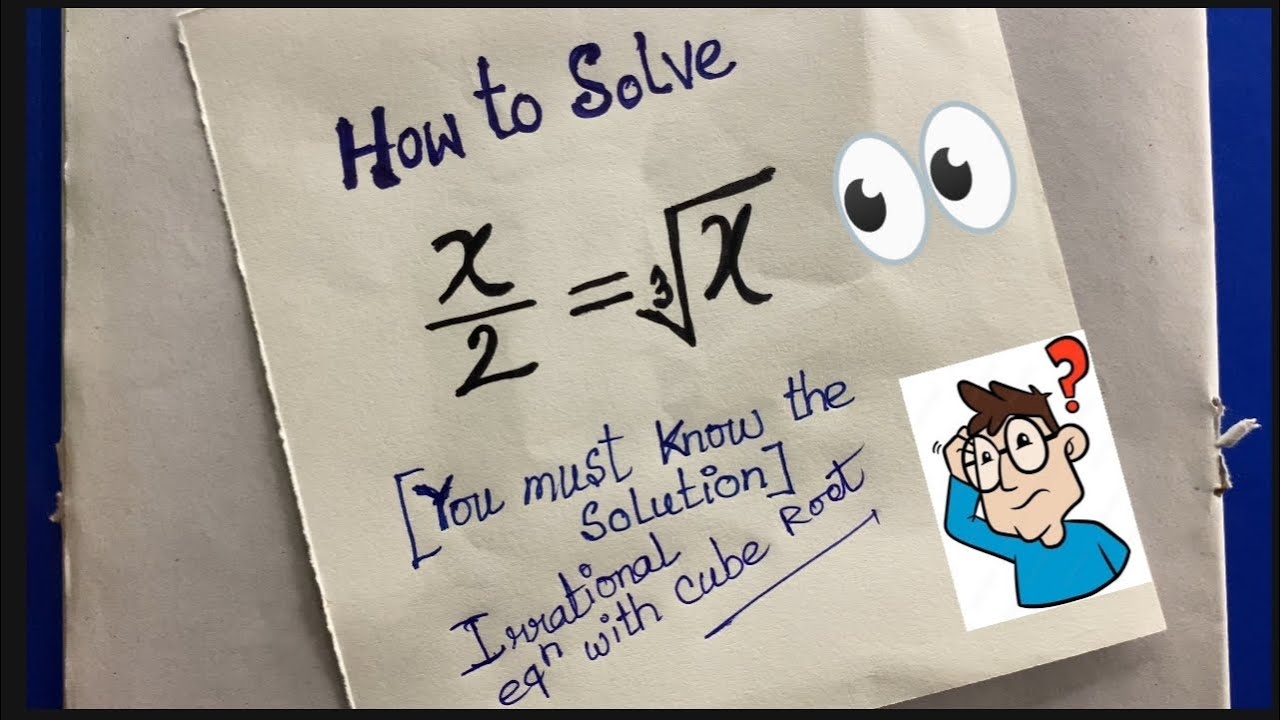 How to Solve
x/2 = ∛x
[You must know the
Solution]
Irrational
eqⁿ with cube Root
?